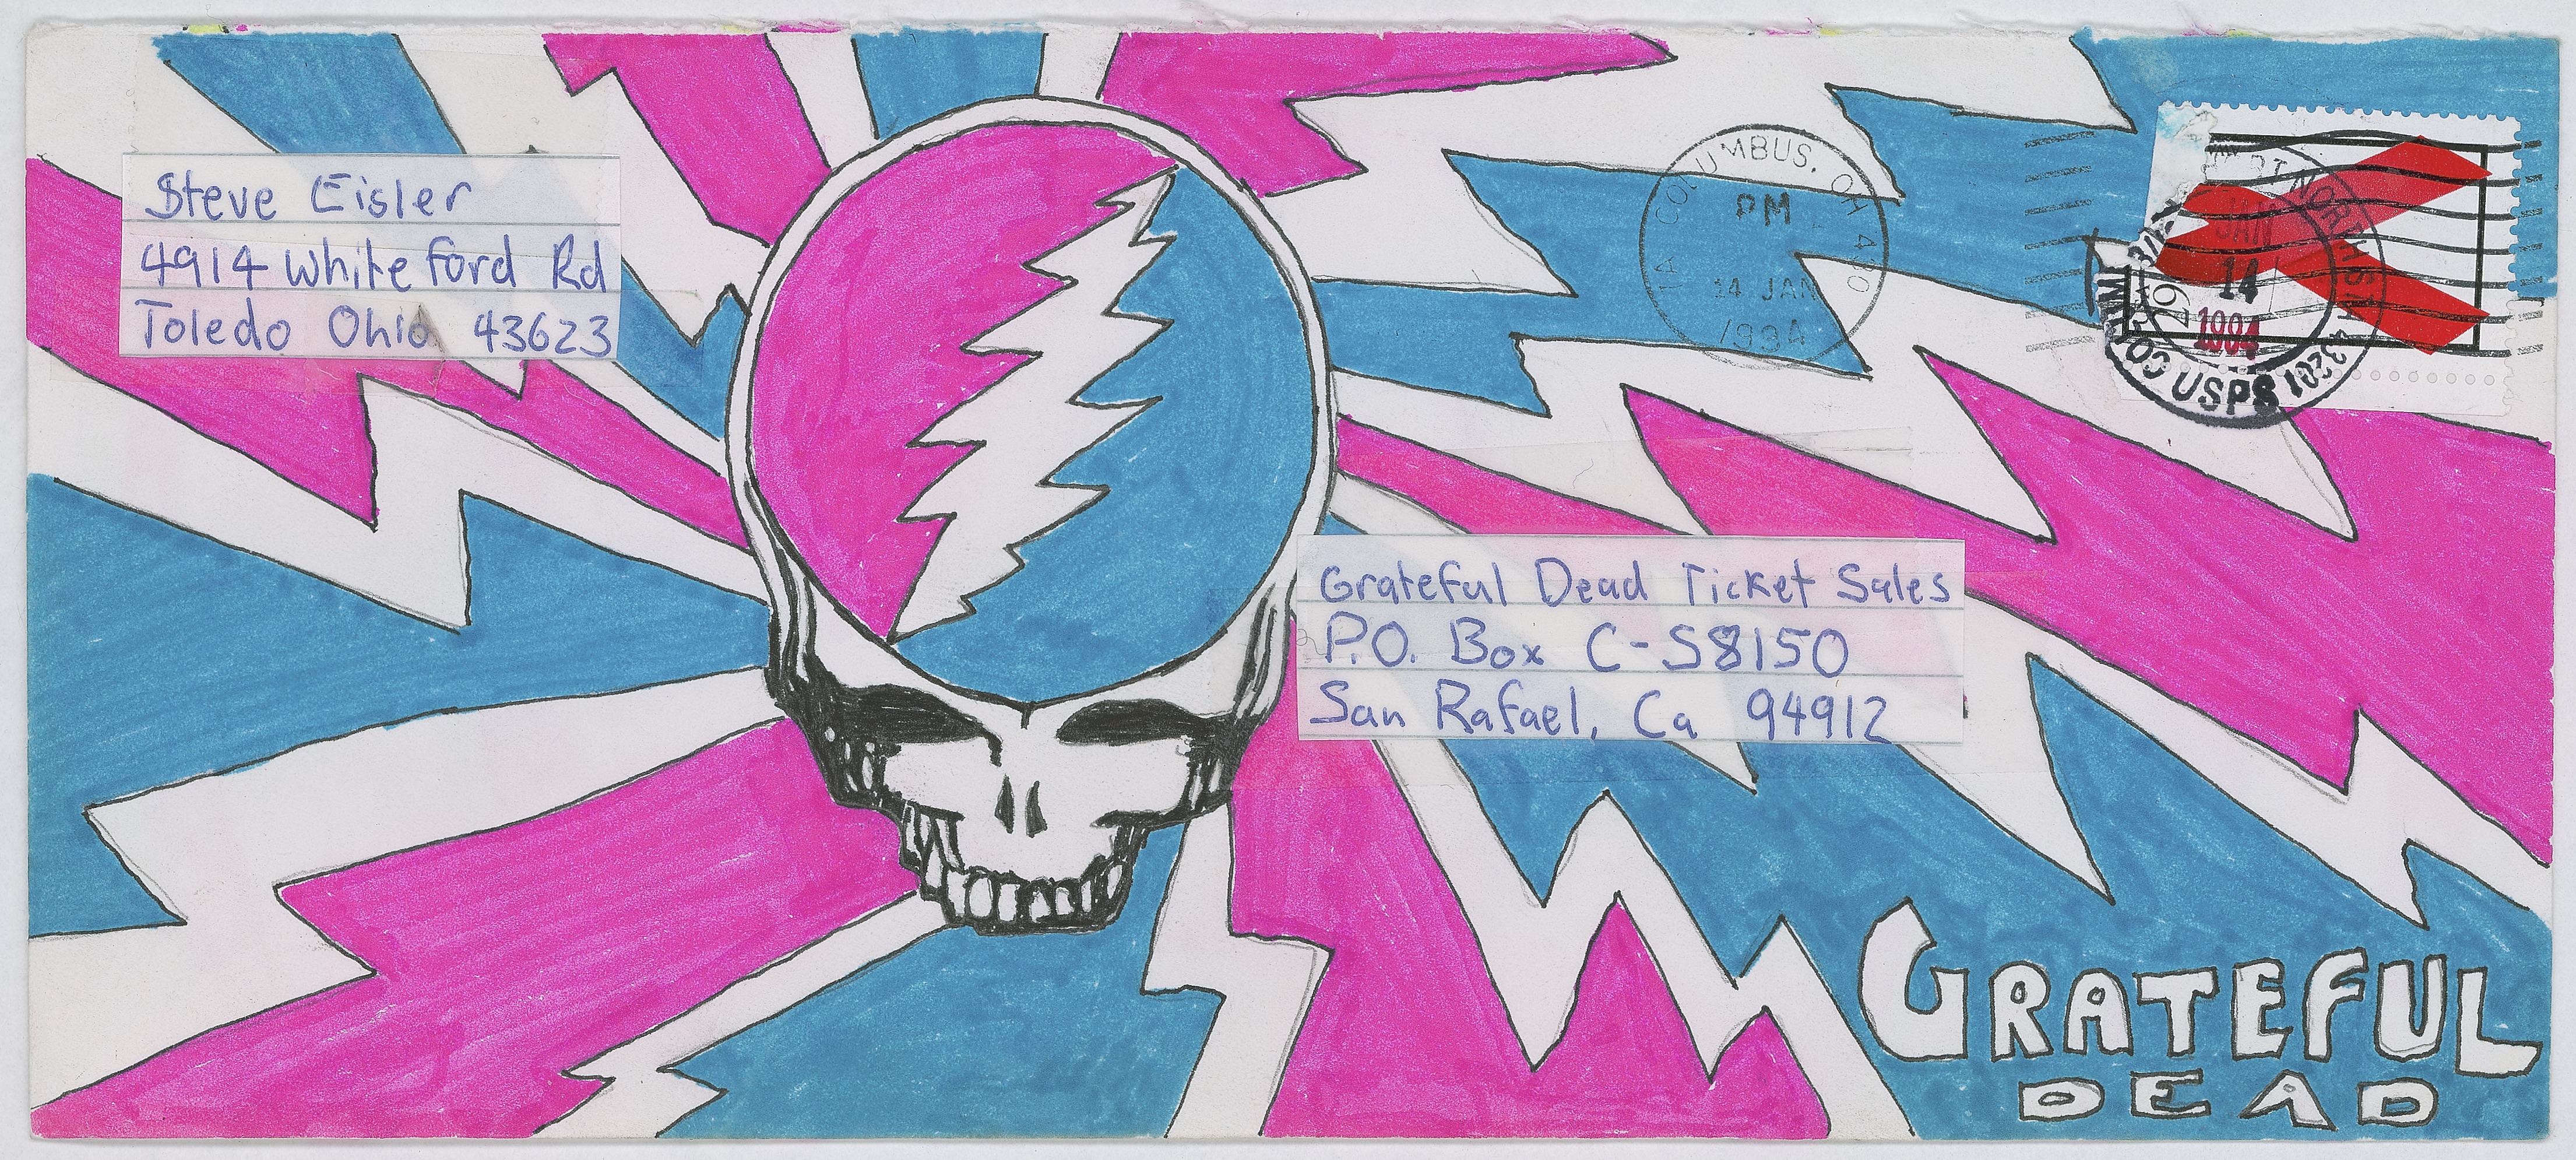 Steve Eisler
4914 Whiteford Rd
Toledo Ohio 43623
COLUMBUS, OH 430
PM
14 JAN
1994
JAN
14
1994
USPS
Grateful Dead Ticket Sales
P.O. Box C-S8150
San Rafael, Ca 94912
GRATEFUL
DEAD